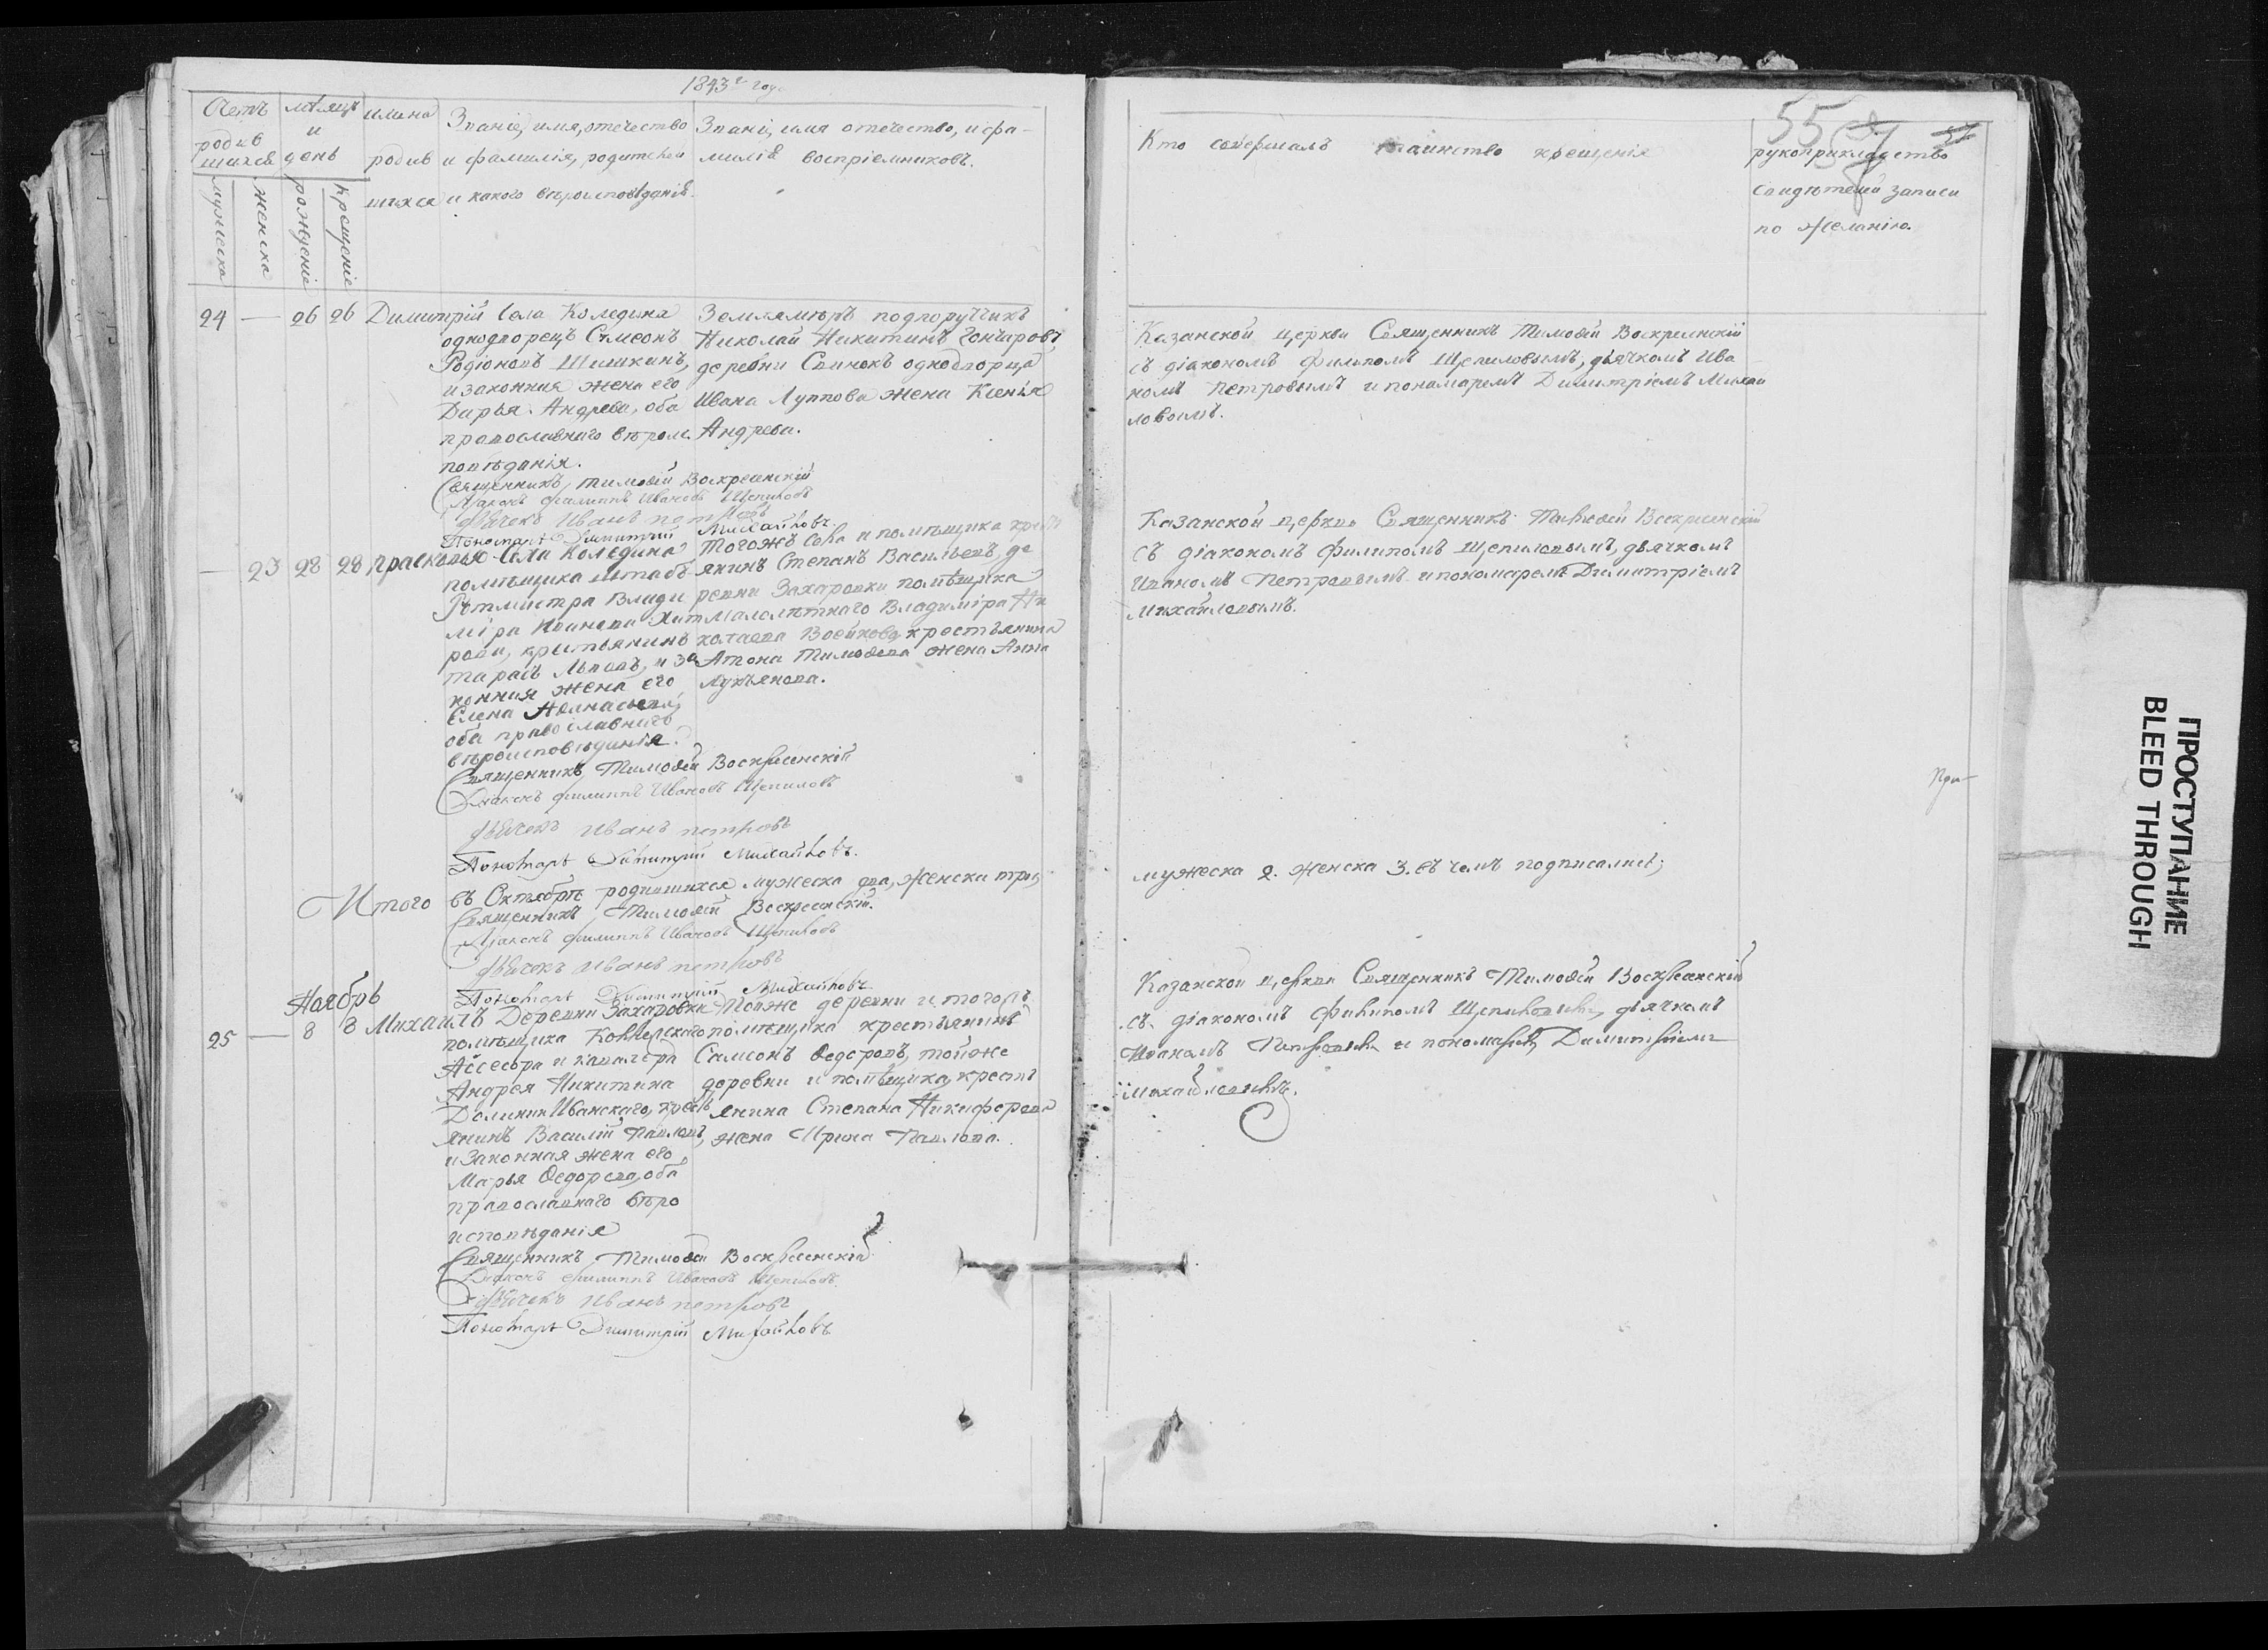 1843 года
Счетъ родив
шихся
мѣсяцъ
и
день
имена
родив
шихся
Званіе, имя, отечество
и фамилія, родителей
и какого вѣроисповѣданія.
Званіе, имя отечество, и фа-
милія воспріемниковъ.
мужеска
женска
рожденіе
крещеніе
24 — 26 26 Димитрій
Села Коледина
однодворецъ Сѵмеонъ
Родіоновъ Шишкинъ,
и законная жена его
Дарья Андреева, оба
православнаго вѣроис
повѣданія.
Землемѣръ подпоручикъ
Николай Никитинъ Гончаровъ,
деревни Свинокъ однодворца
Ивана Луппова жена Ксенія
Андреева.
Священникъ, Тимоѳей Воскресенскій
Діаконъ Филиппъ Ивановъ Щепиловъ
Дьячекъ Иванъ Петровъ
Пономарь Димитрій Михайловъ.
— 23 28 28 Прасковья
Села Коледина
помѣщика штабъ
Ротмистра Влади
міра Иванова Хит
рова, крестьянинъ
Тарасъ Львовъ, и за
конная жена его
Елена Аѳанасьева,
оба православнаго
вѣроисповѣданія.
Тогожъ села и помѣщика кресть
янинъ Степанъ Васильевъ, де
ревни Захаровки помѣщика
Малолѣтнаго Владиміра Ни
колаева Воейкова крестьянина
Антона Тимоѳеева жена Анна
Лукьянова.
Священникъ Тимоѳей Воскресенскій
Діаконъ Филиппъ Ивановъ Щепиловъ
Дьячекъ Иванъ Петровъ
Пономарь Димитрій Михайловъ.
Итого въ Октябрѣ родившихся мужеска два, женска три,
Священникъ, Тимоѳей Воскресенскій.
Діаконъ Филиппъ Ивановъ Щепиловъ
Дьячекъ Иванъ Петровъ
Пономарь Димитрій Михайловъ
Ноябрь
25 — 8 8 Михаилъ
Деревни Захаровки
помѣщика Коллежскаго
Ассесора и кавалера
Андрея Никитина
Долинин Иванскаго, кресть
янинъ Василій Павловъ,
и Законная жена его,
Марья Ѳедорова, оба
православнаго вѣро
исповѣданія
Тойже деревни и тогожъ
помѣщика крестьянинъ
Самсонъ Ѳедоровъ, тойже
деревни и помѣщика, кресть
янина Степана Никифорова
жена Ирина Павлова.
Священникъ Тимоѳей Воскресенскій
Діаконъ Филиппъ Ивановъ Щепиловъ
Дьячекъ Иванъ Петровъ
Пономарь Димитрій Михайловъ
55 57
Кто совершалъ таинство крещенія
рукоприкладство
свидѣтелей записи
по желанію.
Казанской церкви Священникъ Тимоѳей Воскресенскій
съ діакономъ Филипомъ Щепиловымъ, дьячкомъ Ива
номъ Петровымъ и пономаремъ Димитріемъ Михай
ловымъ.
Казанской церкви Священникъ Тимоѳей Воскресенскій
съ діакономъ Филипомъ Щепиловымъ, дьячкомъ
Иваномъ Петровымъ и пономаремъ Димитріемъ
Михайловымъ.
При-
мужеска 2. женска 3. въ чемъ подписались;
Казанской церкви Священникъ Тимоѳей Воскресенскій
съ діакономъ Филипомъ Щепиловымъ, дьячкомъ
Иваномъ Петровымъ и пономаремъ Димитріемъ
Михайловымъ.
ПРОСТУПАНИЕ
BLEED THROUGH